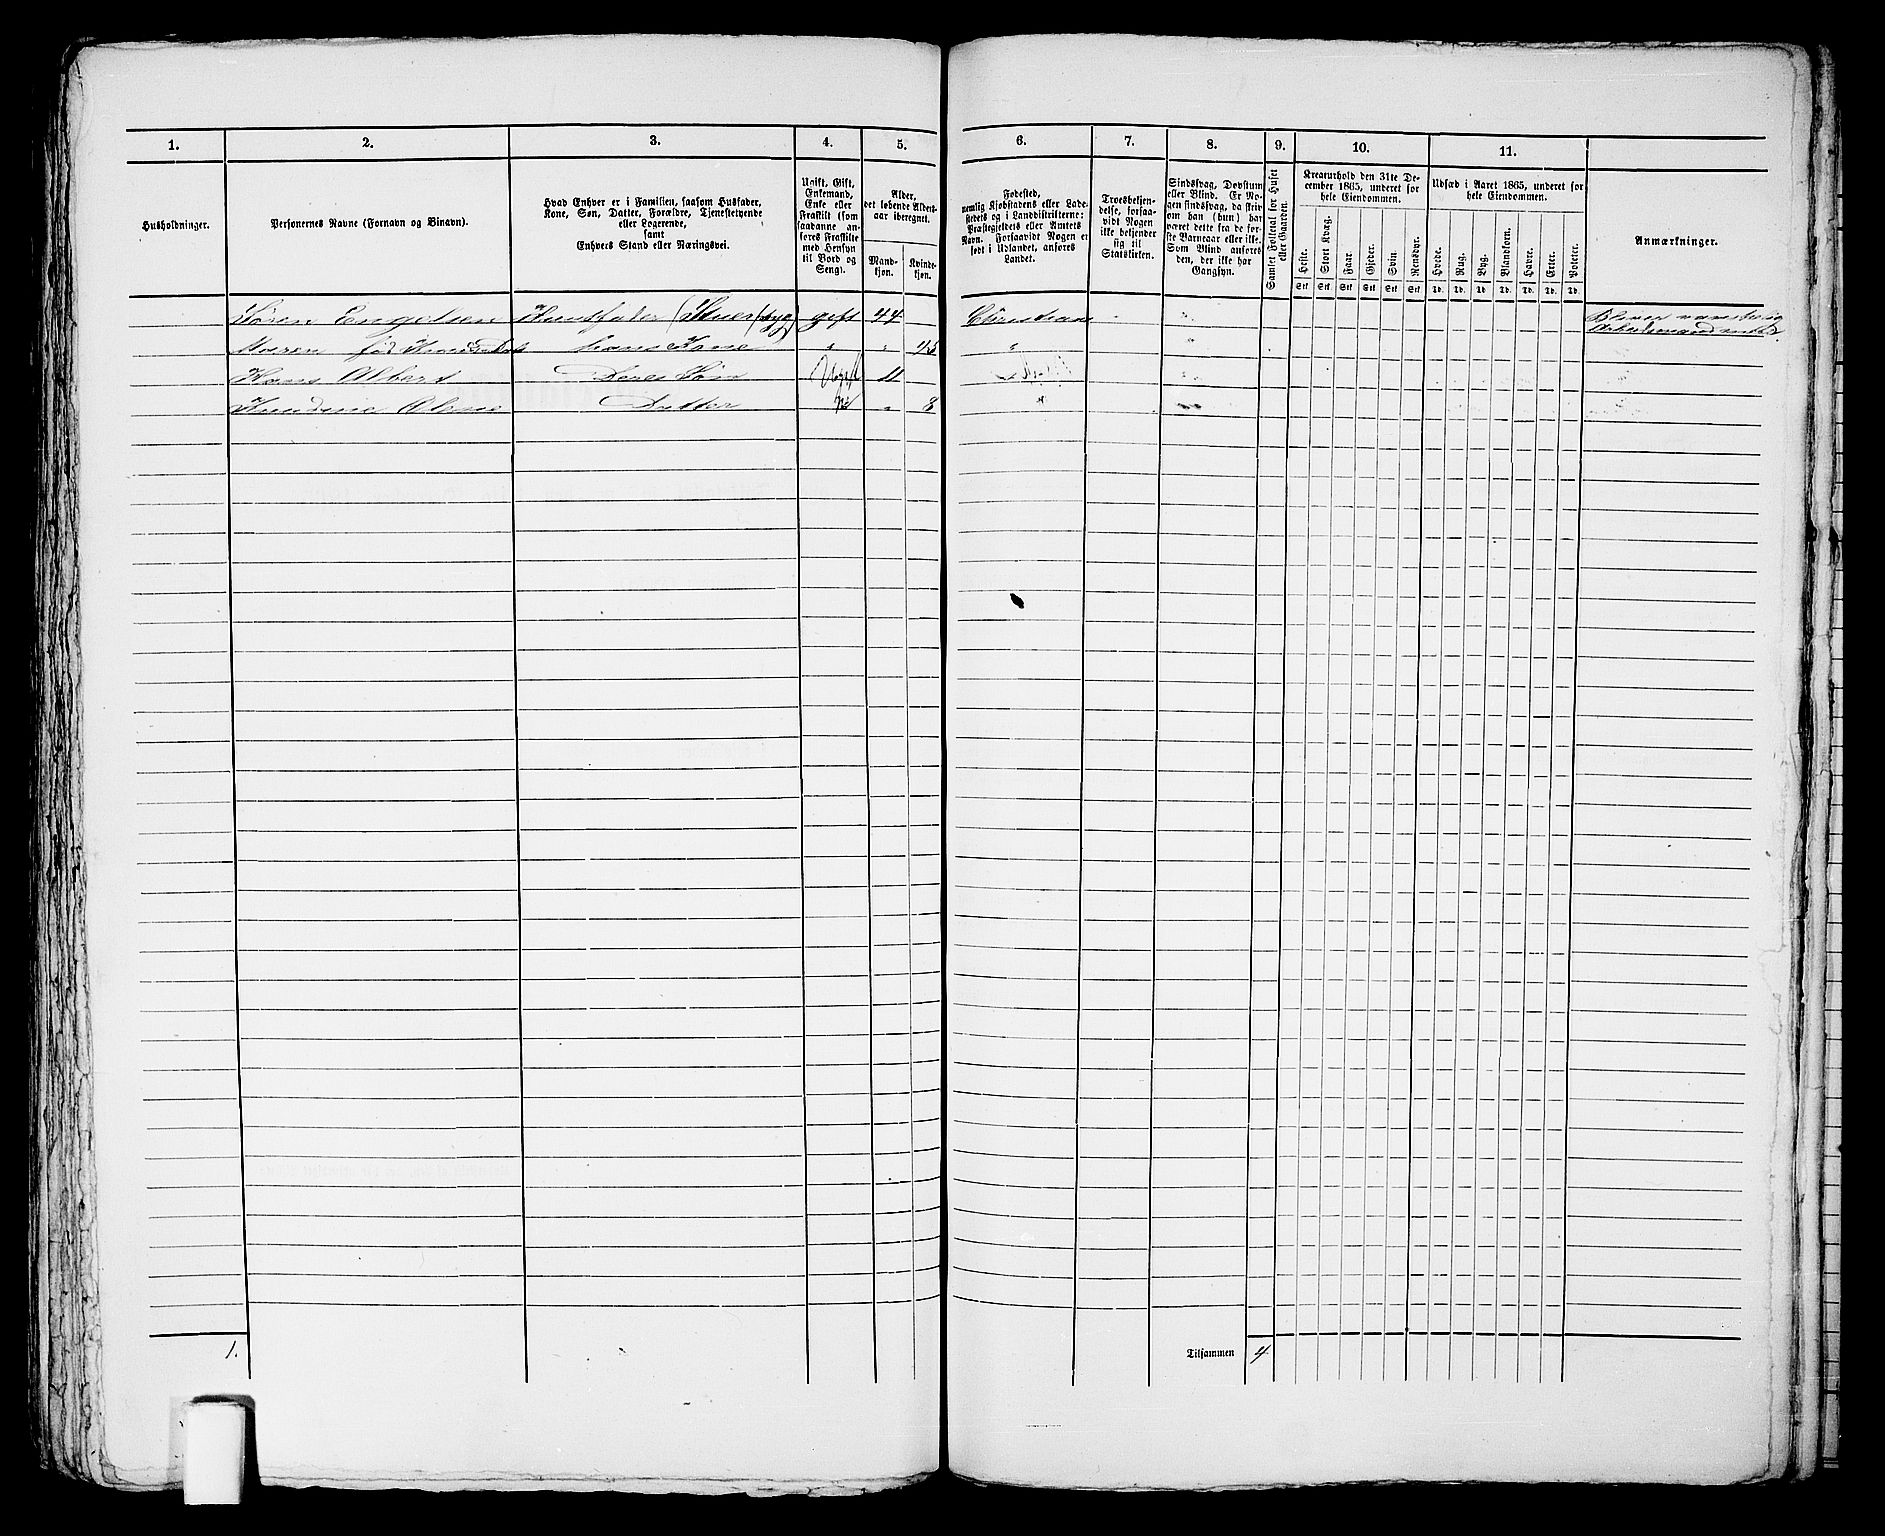 1. 2. 3. 4. 5. 6. 7. 8. 9. 10. 11.
Husholdninger.
Personernes Navne (Fornavn og Binavn).
Hvad Enhver er i Familien, saasom Husfader,
Kone, Søn, Datter, Forældre, Tjenestetyende
eller Logerende,
samt
Enhvers Stand eller Næringsvei.
Ugift, Gift,
Enkemand,
Enke eller
Fraskilt (som
saadanne an-
føres Fraskilte
med Hensyn
til Bord og
Seng).
Alder,
det løbende Alders-
aar iberegnet.
Mand-
kjøn.
Kvinde-
kjøn.
Fødested,
nemlig Kjøbstadens eller Lade-
stedets og i Landdistrikterne:
Præstegjeldets eller Amtets
Navn. Forsaavidt Nogen er
født i Udlandet, anføres
Landet.
Troesbekjen-
delse, forsaa-
vidt Nogen
ikke bekjender
sig til
Statskirken.
Sindssvag, Døvstum
eller Blind. Er No-
gen sindssvag, da hvis
man han (hun) har
været dette fra de før-
ste Barneaar eller ikke.
Som Blind anføres
den, der ikke har
Gangsyn.
Samlet Folketal for Huset
eller Gaarden.
Kreaturhold den 31te De-
cember 1865, underet for
hele Eiendommen.
Heste.
Stort Kvæg.
Faar.
Gjeder.
Svin.
Rensdyr.
Stk Stk Stk Stk Stk Stk
Udsæd i Aaret 1865, underet for
hele Eiendommen.
Hvede.
Rug.
Byg.
Blandkorn.
Havre.
Erter.
Poteter.
Td. Td. Td Td. Td. Td. Td.
Anmærkninger.
Søren Engelsen Huusfader gift 44
Maren fød Hans Kone " " 45 "
Hans Albert Deres Søn Ugift 11
Datter " 8 "
1. Tilsammen 4